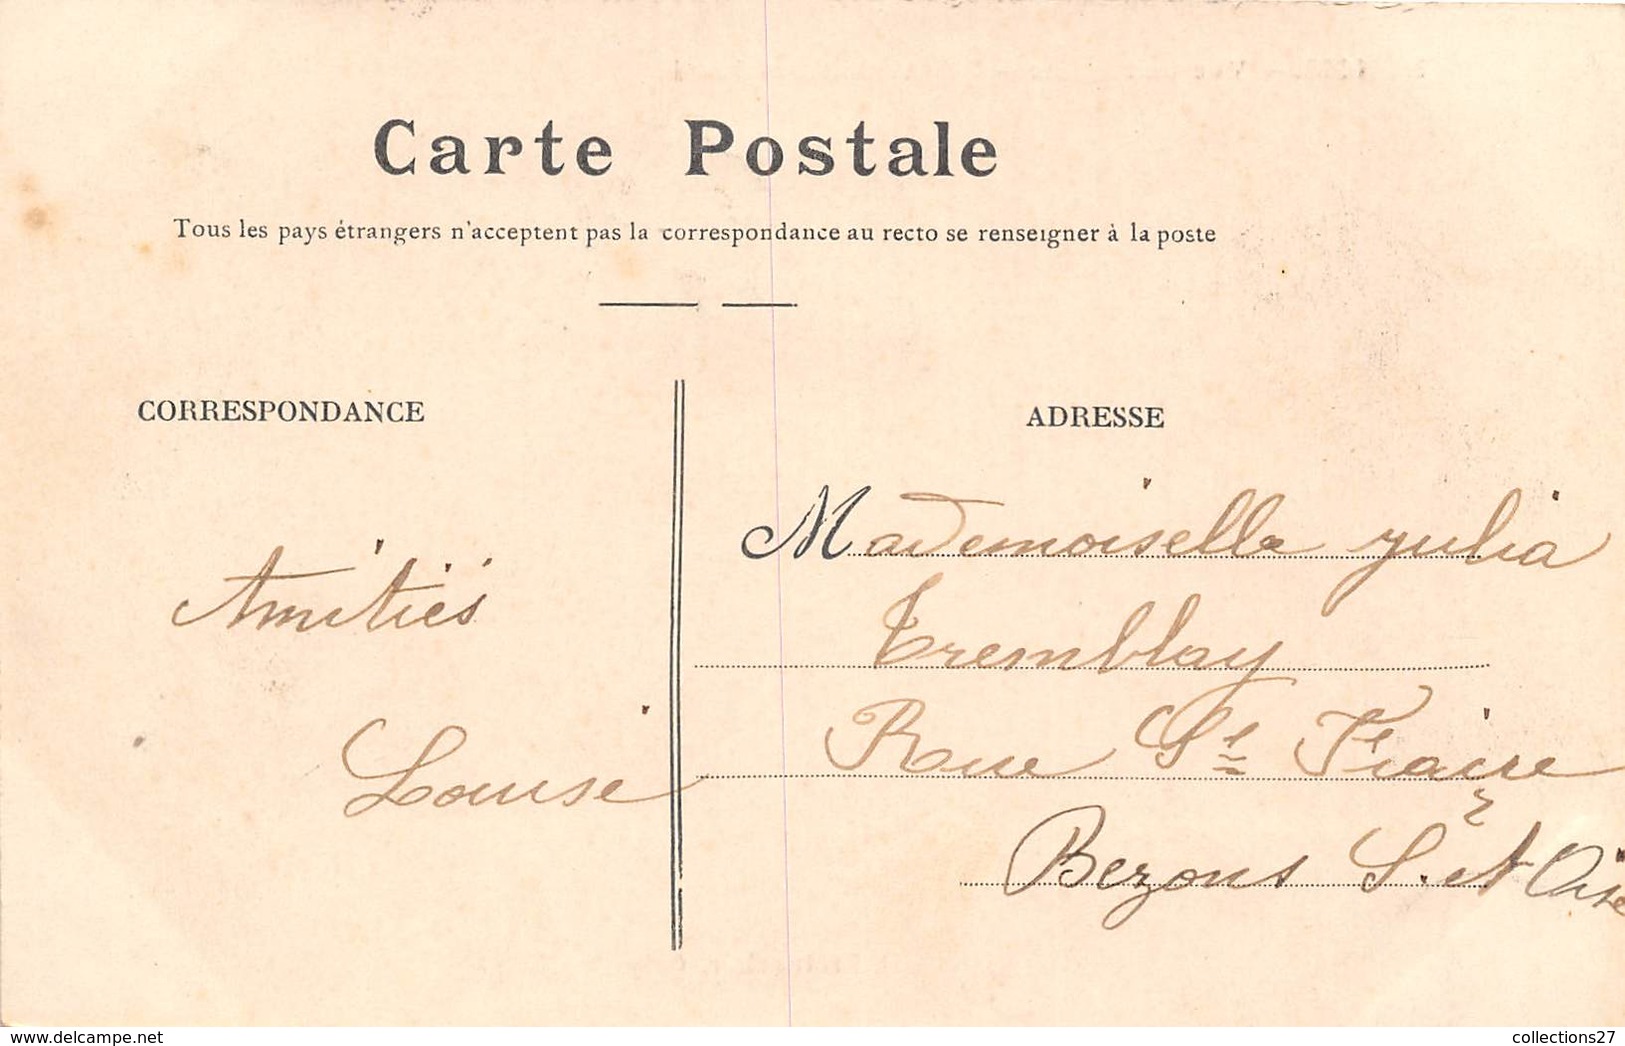 Carte Postale
Tous les pays étrangers n'acceptent pas la correspondance au recto se renseigner à la poste
CORRESPONDANCE
Amitiés
Louise
ADRESSE
Mademoiselle Julia
Tremblay
Rue St
Bezons S. et Oise
delcampe.net
collections27